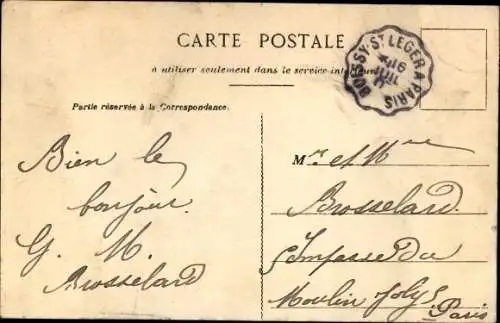 CARTE POSTALE
à utiliser seulement dans le service intérieur
BOISSY-ST LEGER A PARIS
Partie réservée à la Correspondance.
Bien le
bonjour.
G. M.
Brosselard
Mr et Mme
Brosselard.
5 Impasse du
Moulin Joly 5
Paris